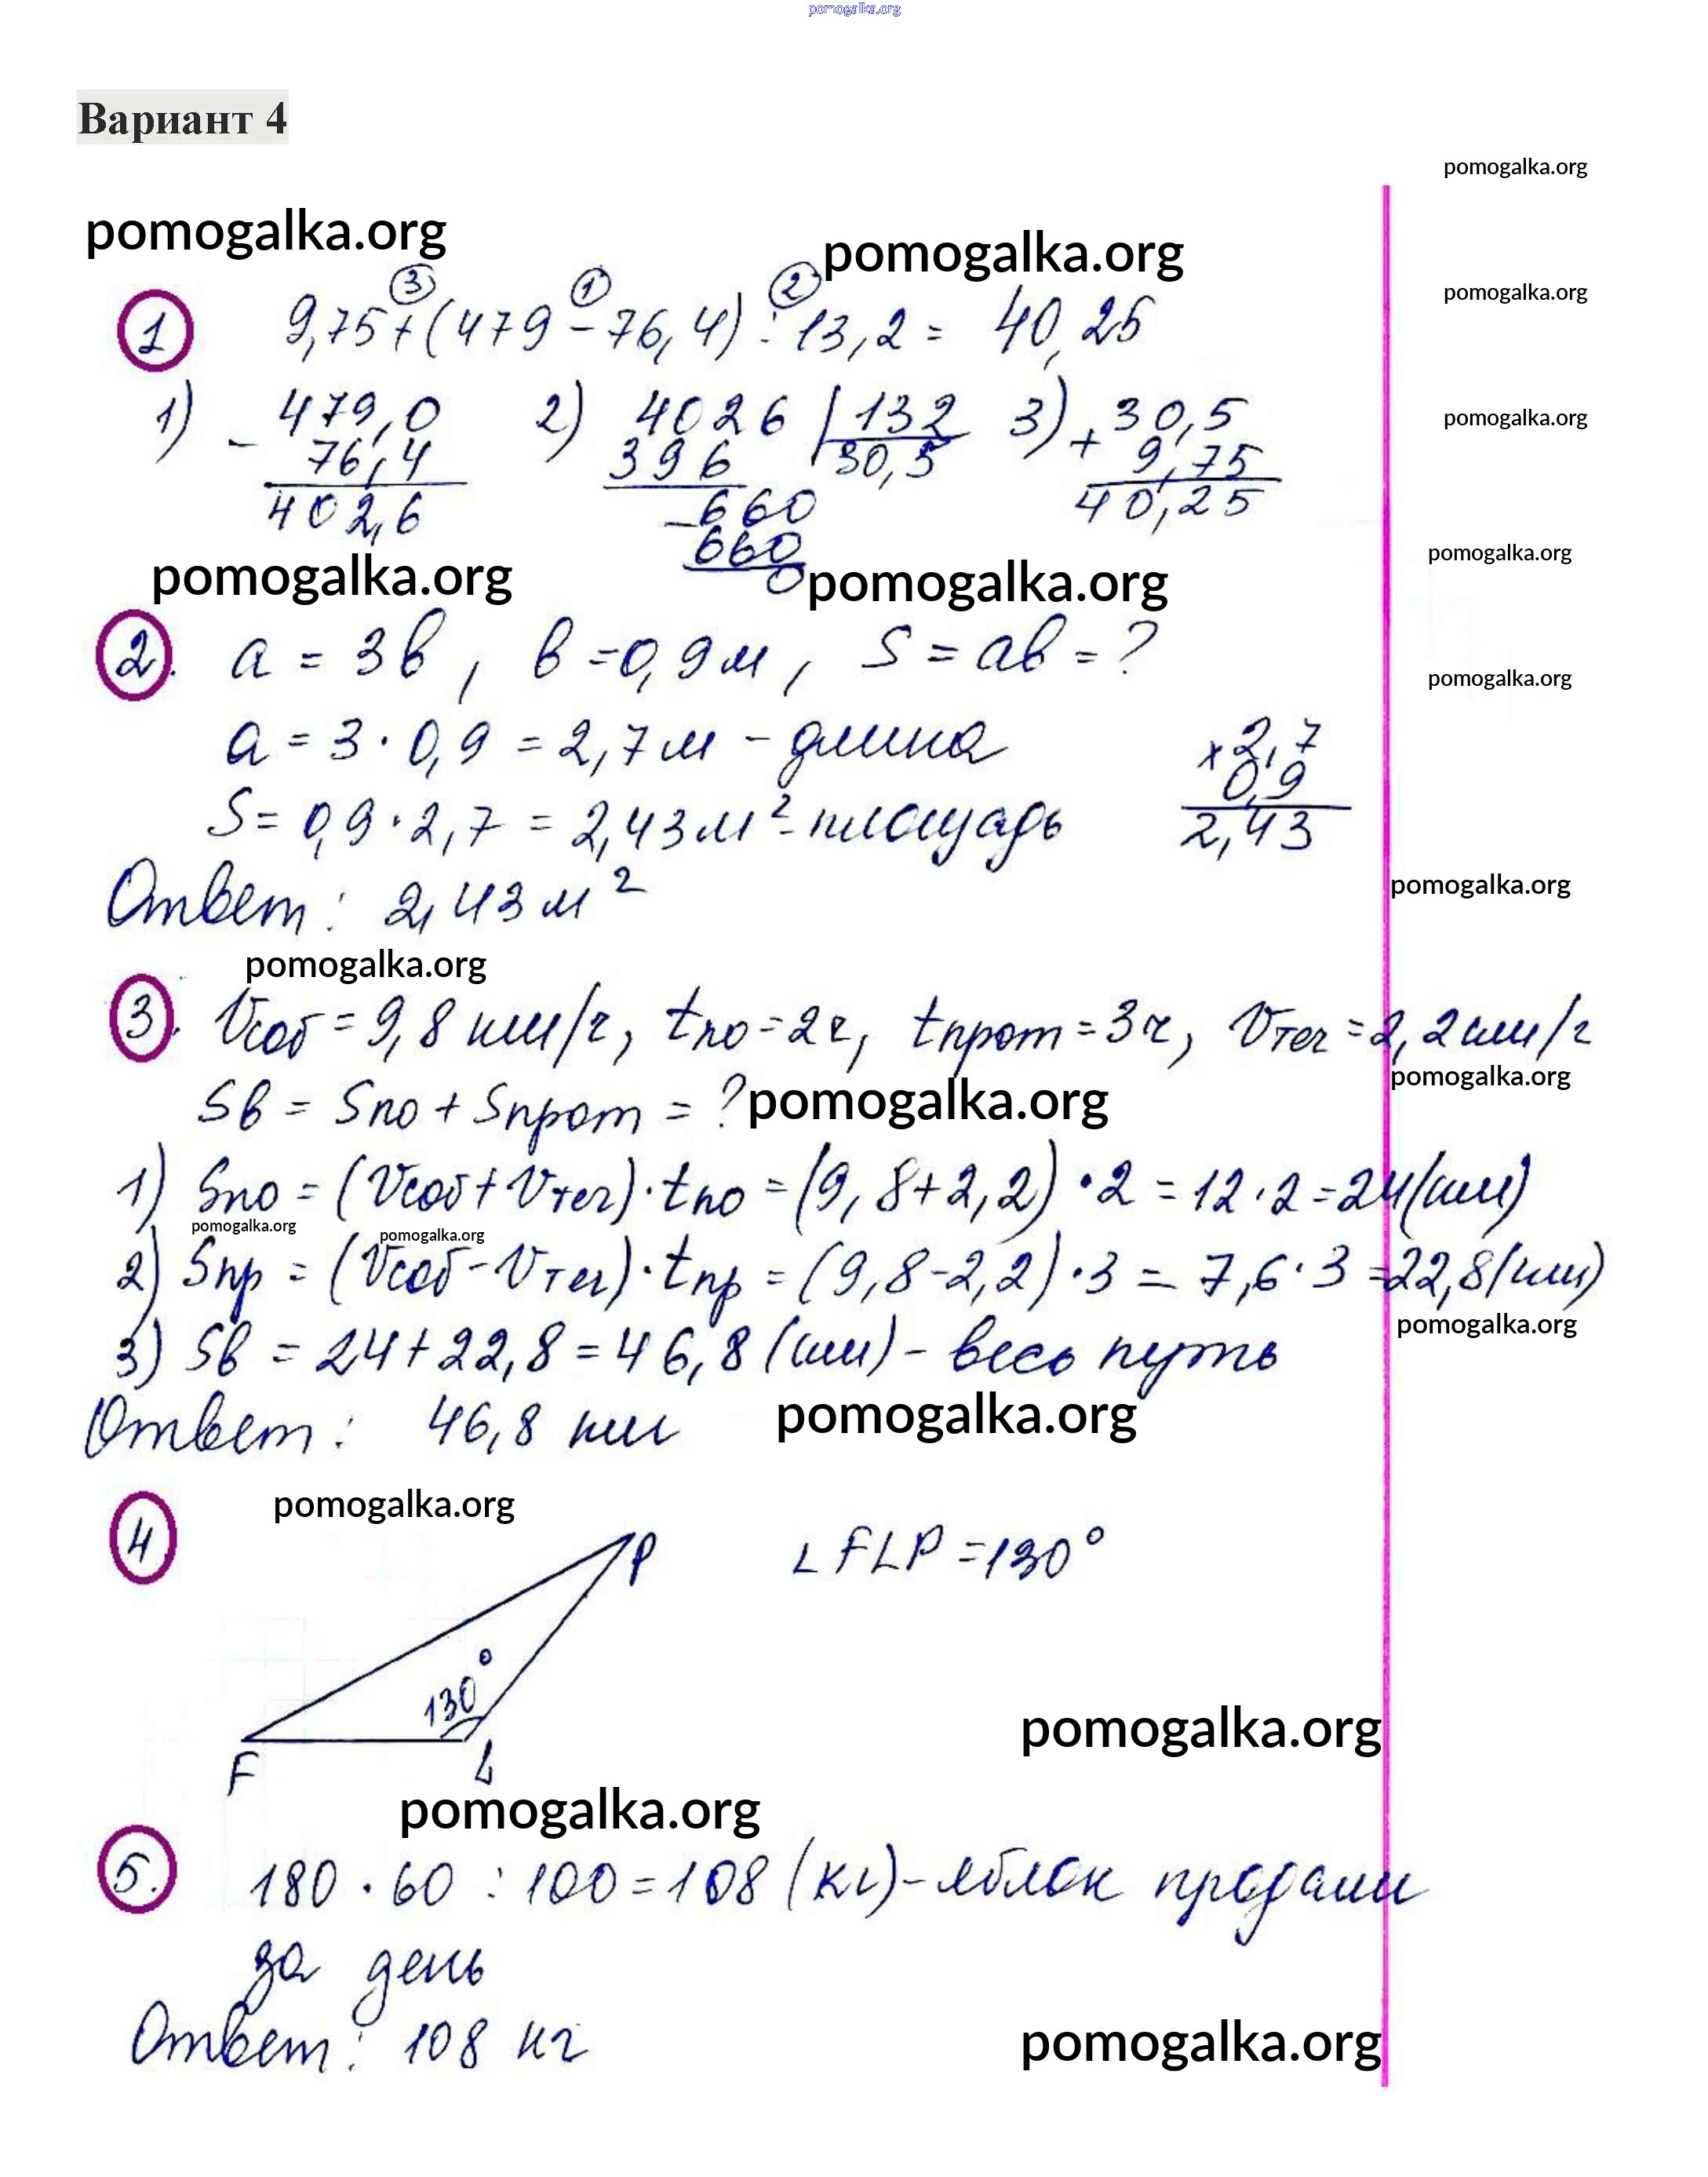 pomogalka.org
Вариант 4
pomogalka.org
pomogalka.org
pomogalka.org
pomogalka.org
3 1 2
1 9,75+(479-76,4):13,2= 40,25
pomogalka.org
1) 479,0 2) 4026 | 132 3) + 30,5
- 76,4 396 30,5 9,75
402,6 - 660 40,25
660
0
pomogalka.org
pomogalka.org
pomogalka.org
2. a = 3b, b =0,9м, S = ab = ?
pomogalka.org
a = 3 · 0,9 = 2,7м - длина × 2,7
0,9
S= 0,9 · 2,7 = 2,43м² - площадь 2,43
Ответ: 2,43м²
pomogalka.org
pomogalka.org
3. Vсоб = 9,8 км/ч, tпо=2ч, tпрот=3ч, Vтеч =2,2км/ч
pomogalka.org
Sв = Sпо + Sпрот = ?
pomogalka.org
1) Sпо = (Vсоб+Vтеч)·tпо =(9,8+2,2)·2 = 12·2=24(км)
pomogalka.org
pomogalka.org
2) Sпр = (Vсоб-Vтеч)·tпр =(9,8-2,2)·3 = 7,6·3 =22,8(км)
pomogalka.org
3) Sв = 24+22,8=46,8(км) - весь путь
Ответ: 46,8 км
pomogalka.org
pomogalka.org
4
P
∠FLP =130°
130°
F L
pomogalka.org
pomogalka.org
5. 180 · 60 : 100=108 (кг)-яблок продали
за день
Ответ: 108 кг
pomogalka.org